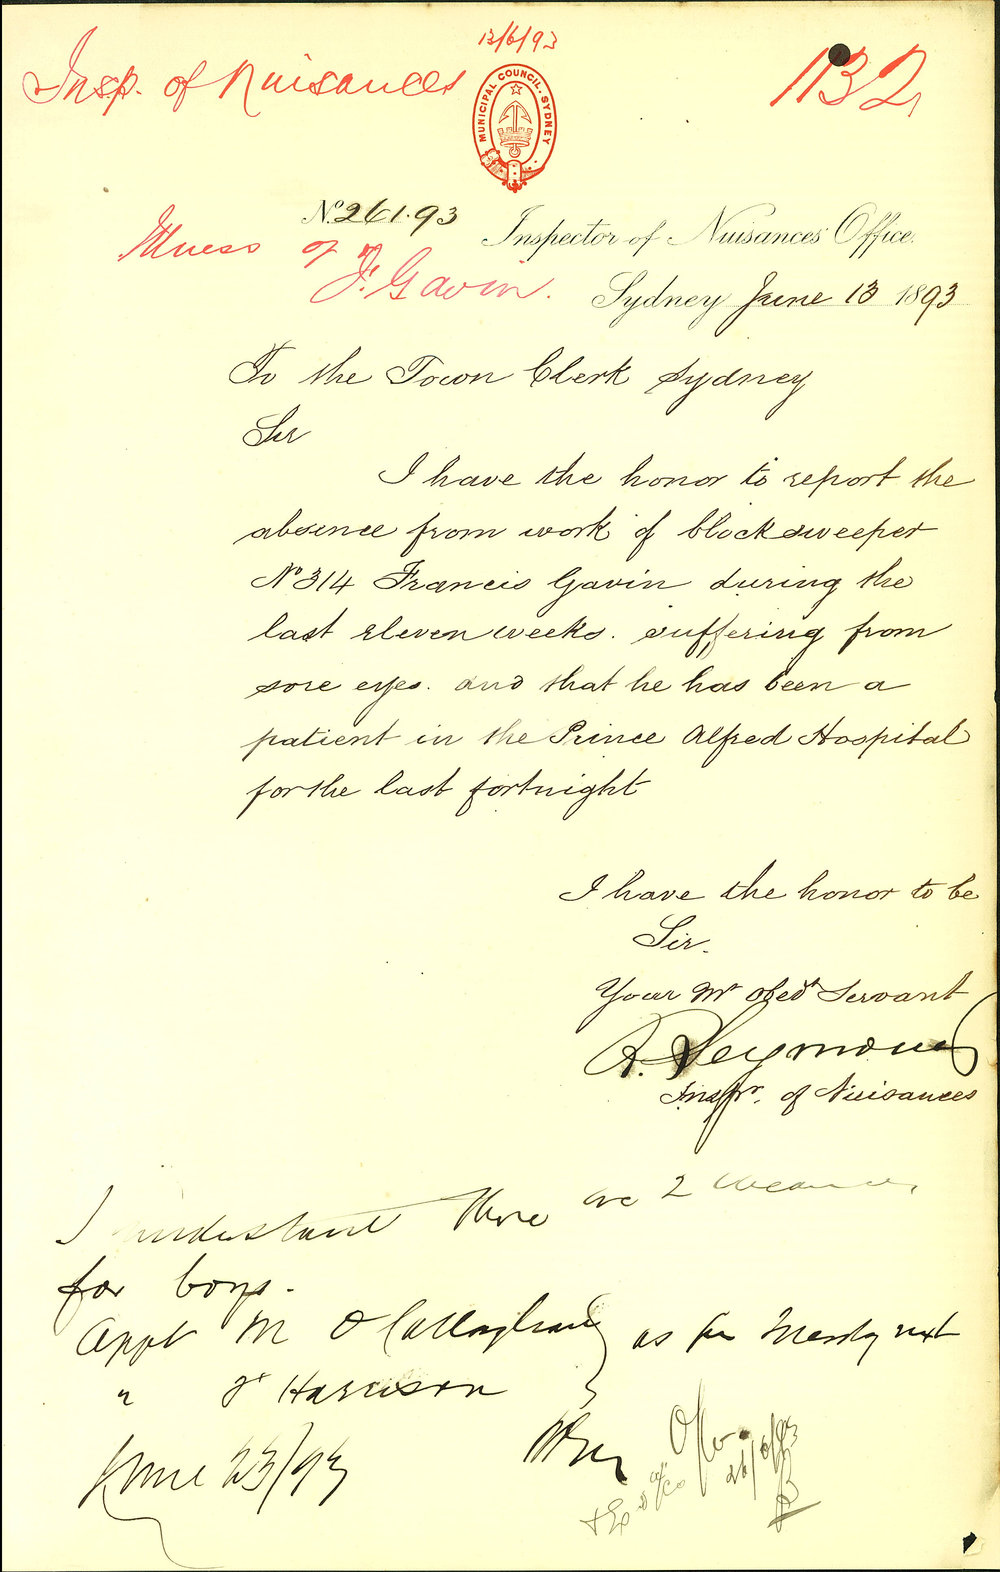 13/6/93
Insp. of Nuisances
132
MUNICIPAL COUNCIL. SYDNEY
No. 261.93
Inspector of Nuisances Office.
Illness of
F. Gavin.
Sydney June 13 1893
To the Town Clerk Sydney
Sir
I have the honor to report the
absence from work of blocksweeper
No 314 Francis Gavin during the
last eleven weeks. suffering from
sore eyes. and that he has been a
patient in the Prince Alfred Hospital
for the last fortnight
I have the honor to be
Sir.
Your Mt Obedt Servant
R. Seymour
Inspr. of Nuisances
I understand there are 2
for boys.
Appt M O'Callaghan } as from Monday next
" J Harrison }
June 23/93
26/6/93